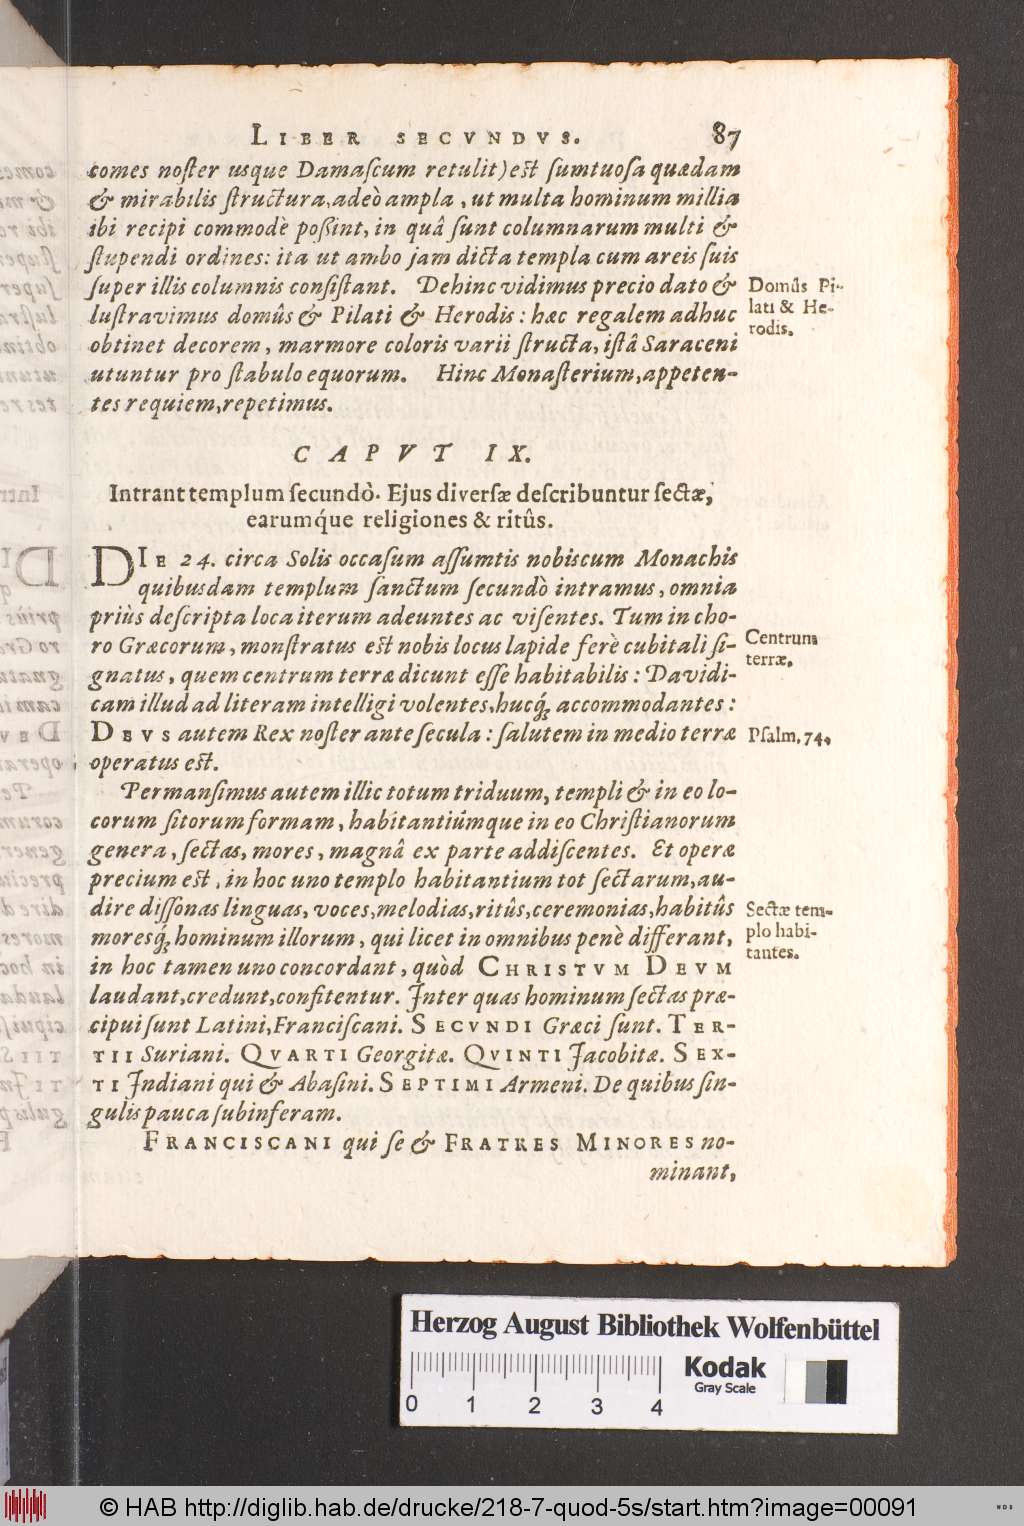 LIBER SECVNDVS. 87
comes noſter usque Damaſcum retulit) eſt ſumtuoſa quædam
& mirabilis ſtructura, adeò ampla, ut multa hominum millia
ibi recipi commodè poßint, in quâ ſunt columnarum multi &
ſtupendi ordines: ita ut ambo jam dicta templa cum areis ſuis
ſuper illis columnis conſiſtant. Dehinc vidimus precio dato &
luſtravimus domûs & Pilati & Herodis: hæc regalem adhuc
obtinet decorem, marmore coloris varii ſtructa, iſtâ Saraceni
utuntur pro ſtabulo equorum. Hinc Monaſterium, appeten-
tes requiem, repetimus.
Domûs Pi-
lati & He-
rodis.
CAPVT IX.
Intrant templum ſecundò. Ejus diverſæ deſcribuntur ſectæ,
earumq́ue religiones & ritûs.
DIE 24. circa Solis occaſum aſſumtis nobiscum Monachis
quibusdam templum ſanctum ſecundò intramus, omnia
priùs deſcripta loca iterum adeuntes ac viſentes. Tum in cho-
ro Græcorum, monſtratus eſt nobis locus lapide ferè cubitali ſi-
gnatus, quem centrum terræ dicunt eſſe habitabilis: Davidi-
cam illud ad literam intelligi volentes, hucq́; accommodantes:
DEVS autem Rex noſter ante ſecula: ſalutem in medio terræ
operatus eſt.
Centrum
terræ.
Pſalm. 74.
Permanſimus autem illic totum triduum, templi & in eo lo-
corum ſitorum formam, habitantiúmque in eo Chriſtianorum
genera, ſectas, mores, magnâ ex parte addiſcentes. Et operæ
precium eſt, in hoc uno templo habitantium tot ſectarum, au-
dire diſſonas linguas, voces, melodias, ritûs, ceremonias, habitûs
moresq́; hominum illorum, qui licet in omnibus penè differant,
in hoc tamen uno concordant, quòd CHRISTVM DEVM
laudant, credunt, confitentur. Inter quas hominum ſectas præ-
cipui ſunt Latini, Franciſcani. SECVNDI Græci ſunt. TER-
TII Suriani. QVARTI Georgitæ. QVINTI Jacobitæ. SEX-
TI Indiani qui & Abaſini. SEPTIMI Armeni. De quibus ſin-
gulis pauca ſubinferam.
Sectæ tem-
plo habi-
tantes.
FRANCISCANI qui ſe & FRATRES MINORES no-
minant,
Herzog August Bibliothek Wolfenbüttel
Kodak
Gray Scale
0 1 2 3 4
© HAB http://diglib.hab.de/drucke/218-7-quod-5s/start.htm?image=00091